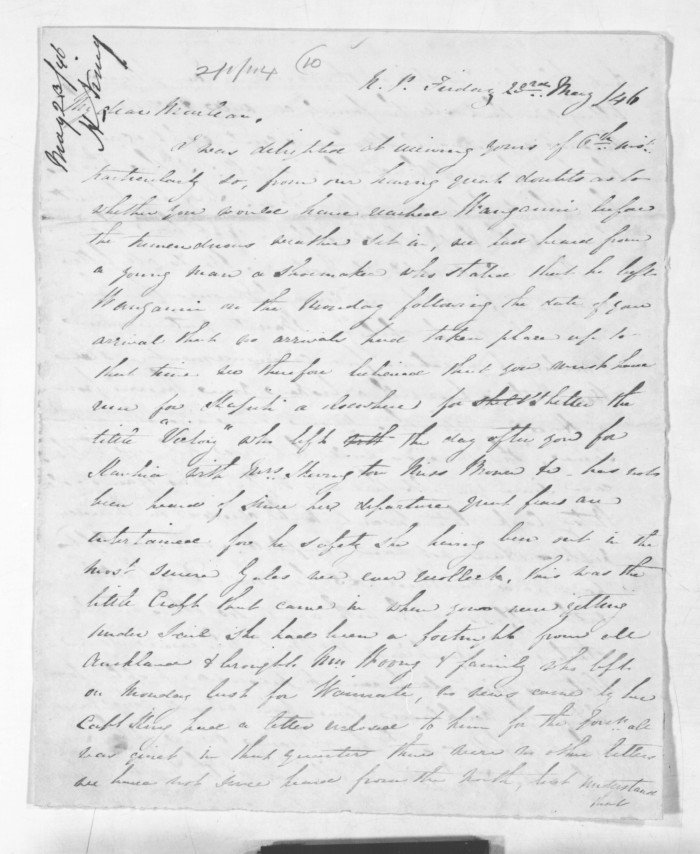 2/1/114 (10)
May 23/46
H King
N. P. Friday 23rd May /46
My dear McLean,
I was delighted at receiving yours of 6th inst.
particularly so, from our having great doubts as to
whether you would have reached Wanganui before
the tremendous weather set in, we had heard from
a young man a Shoemaker who stated that he left
Wanganui on the Monday following the date of your
arrival that no arrivals had taken place up to
that time we therefore believed that you must have
run for Kapiti or elsewhere for shelter the
little "Victory" who left the day after you for
Kawhia with Mrs. Miss &c. has not
been heard of since her departure great fears are
entertained for her safety she having been out in the
most severe Gales we ever recollect, this was the
little Craft that came in when you were getting
under Sail she had been a fortnight from
Auckland & brought Mrs & family who left
on Monday last for Waimate, no news came by her
Capt King had a letter to him for the
was quiet in that quarter there were no other letters
we have not since heard from the North, but understand
that